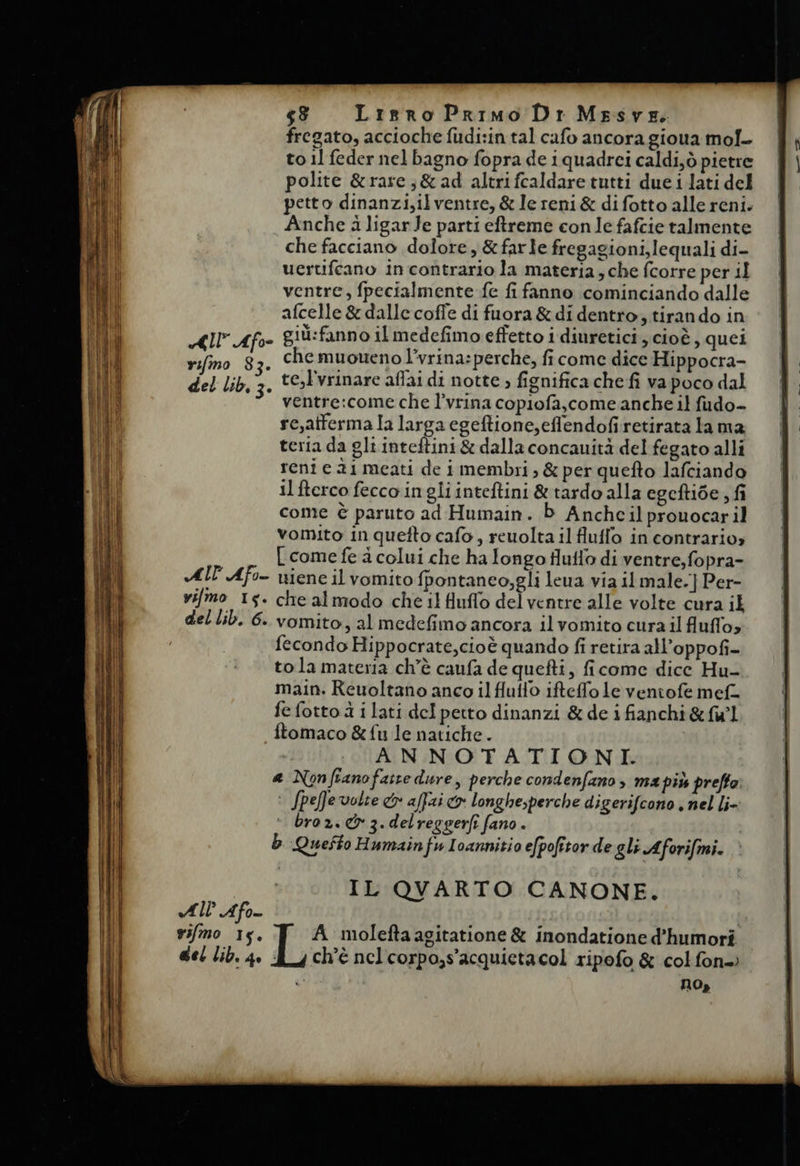 58 LIBRO PRIMO DI MESVE.
fregato, accioche ſudi:in tal caſo ancora gioua mol-
to il ſeder nel bagno ſopra de i quadrei caldi,ò pietre
polite & rare, & ad altri ſcaldare tutti due i lati del
petto dinanzi,il ventre, & le reni & di ſotto alle reni.
Anche à ligar le parti eſtreme con le faſcie talmente
che facciano dolore, & far le fregagioni,lequali di-
uertiſcano in contrario la materia, che ſcorre per il
ventre, ſpecialmente ſe ſi fanno cominciando dalle
aſcelle & dalle coſſe di fuora & di dentro, tirando in
All' Afo- giù:fanno il medeſimo effetto i diuretici, cioè, quei
riſmo 83. che muoueno l'vrina:perche, ſi come dice Hippocra-
del lib. 3. te,l'vrinare aſſai di notte, ſignifica che ſi va poco dal
ventre:come che l'vrina copioſa,come anche il ſudo-
re,afferma la larga egeſtione,eſſendoſi retirata la ma
teria da gli inteſtini & dalla concauità del fegato alli
reni e ài meati de i membri, & per queſto laſciando
il ſterco ſecco in gli inteſtini & tardo alla egeſtiõe, ſi
come è paruto ad Humain. b Anche il prouocar il
vomito in queſto caſo, reuolta il fluſſo in contrario,
[ come ſe à colui che ha longo fluſſo di ventre,ſopra-
All' Afo- uiene il vomito ſpontaneo,gli leua via il male.] Per-
riſmo 15. che al modo che il fluſſo del ventre alle volte cura il
del lib. 6. vomito, al medeſimo ancora il vomito cura il fluſſo,
ſecondo Hippocrate,cioè quando ſi retira all'oppoſi-
to la materia ch'è cauſa de queſti, ſi come dice Hu-
main. Reuoltano anco il fluſſo iſteſſo le ventoſe meſ-
ſe ſotto à i lati del petto dinanzi & de i fianchi & ſu'l
ſtomaco & ſu le natiche.
ANNOTATIONI.
a Non ſiano fatte dure, perche condenſano, ma più preſto
ſpeſſe volte & aſſai & longhe,perche digeriſcono, nel li-
bro 2. & 3. del reggerſi ſano.
b Queſto Humain fu Ioannitio eſpoſitor de gli Aforiſmi.
IL QVARTO CANONE.
All' Afo-
riſmo 15. LA moleſta agitatione & inondatione d'humori
del lib. 4. ch'è nel corpo,s'acquieta col ripoſo & col ſon-
no,